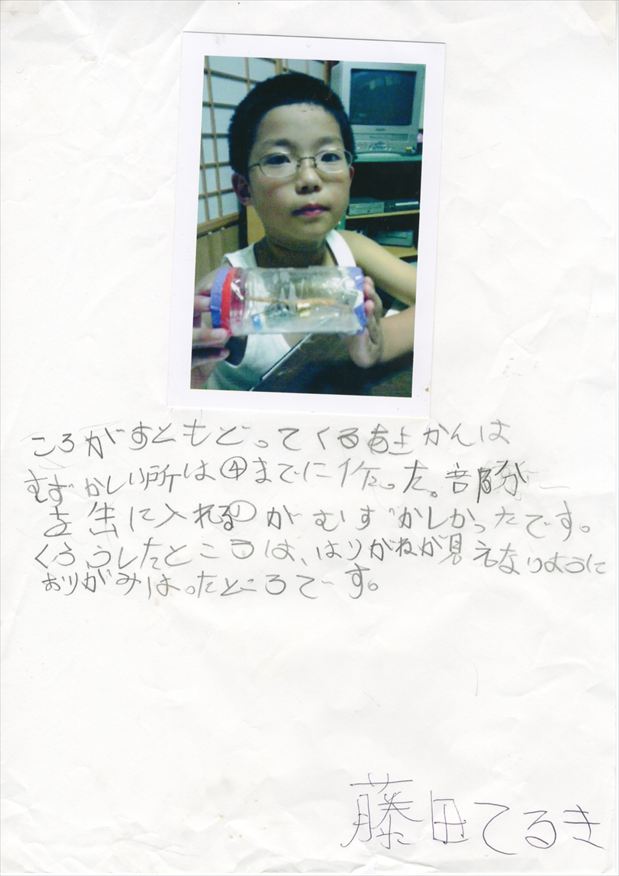 ころがすともどってくる缶かんは
むずかしい所は④までに作った。部分
を缶に入れるのがむずかしかったです。
くろうしたところは、はりがねが見えないように
おりがみはったところです。
藤田てるき